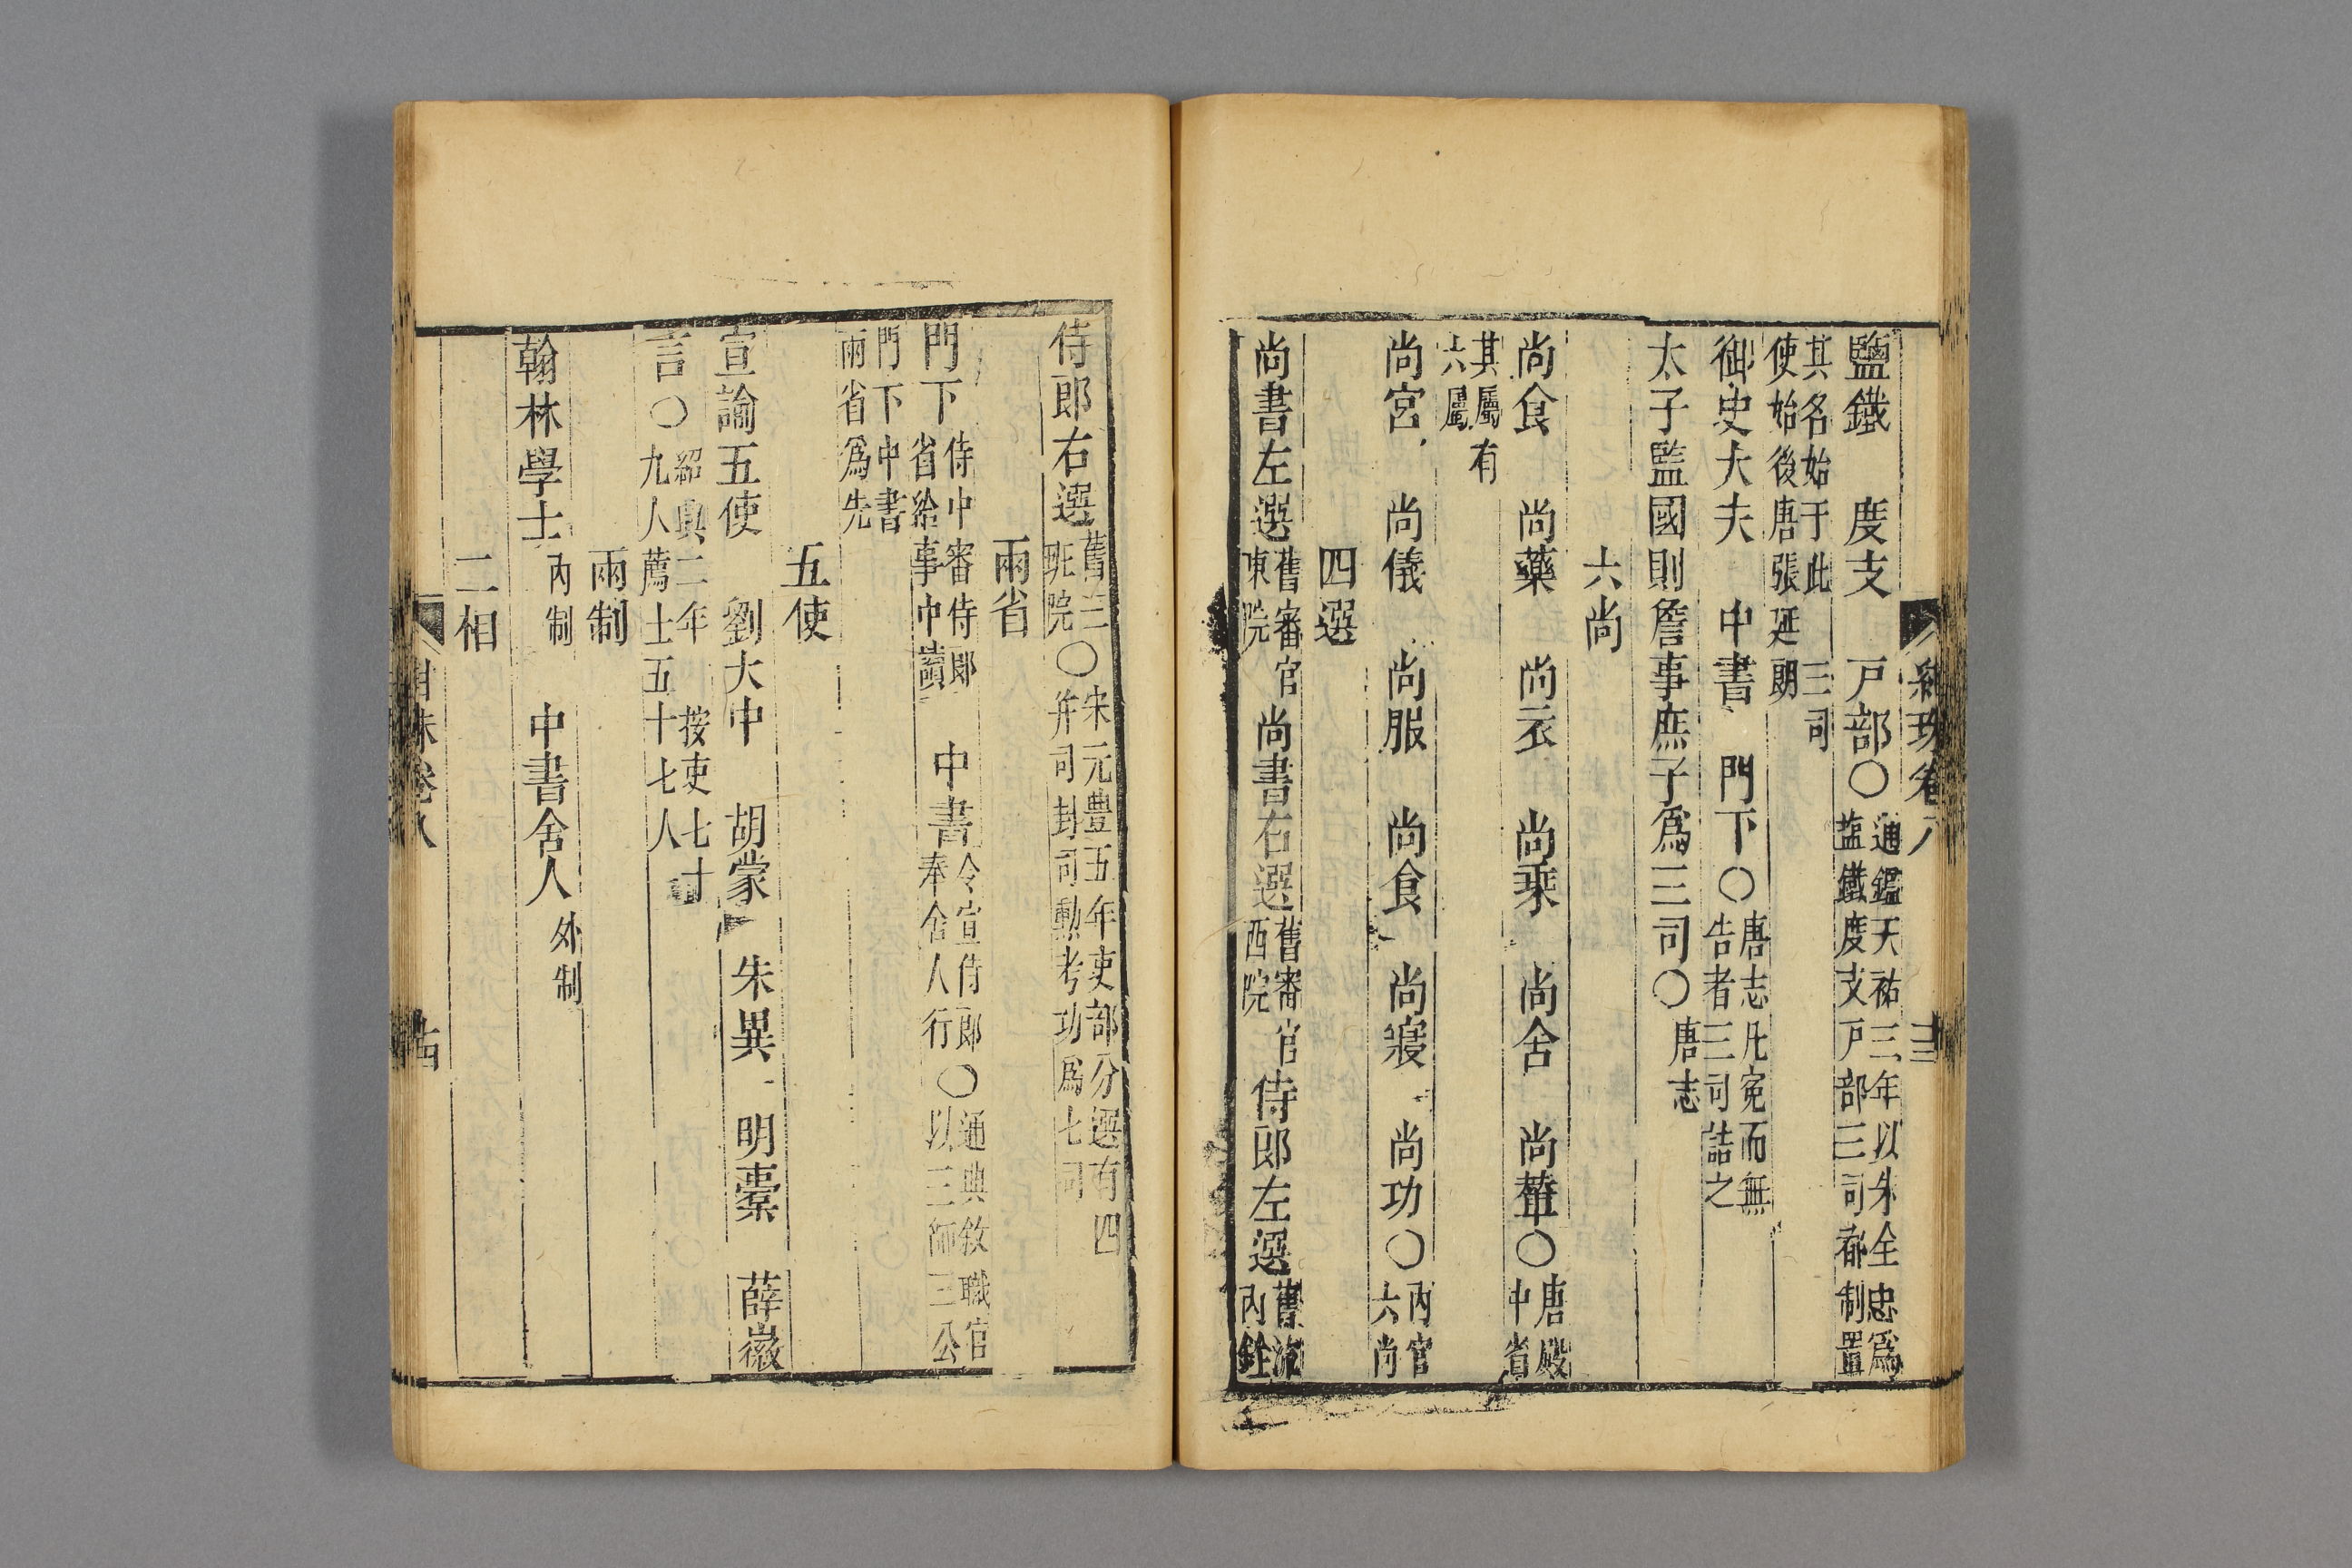 鹽鐵 度支 戸部〇通鑑天祐三年以朱全忠爲塩鐵度支戸部三司都制置
使三司其名始于此使始後唐張延朗
御史大夫 中書 門下〇唐志凡寃而無告者三司詰之
太子監國則詹事庶子爲三司〇唐志
六尚
尚食 尚藥 尚衣 尚乘 尚舍 尚輦〇唐殿中省
其屬有六屬
尚宮 尚儀 尚服 尚食 尚寢 尚功〇内官六尚
四選
尚書左選舊審官東院尚書右選舊審官西院侍郎左選舊流内銓
侍郎右選舊三班院〇宋元豊五年吏部分選有四并司封司勲考功爲七司
兩省
門下侍中審侍郎省給事中讀 中書令宣侍郎奉舍人行〇通典敘職官以三師三公
門下中書兩省爲先
五使
宣諭五使 劉大中 胡蒙 朱異 明橐 薛徽
言〇紹興二年按吏七十九人薦士五十七人
兩制
翰林學士内制 中書舍人外制
二相